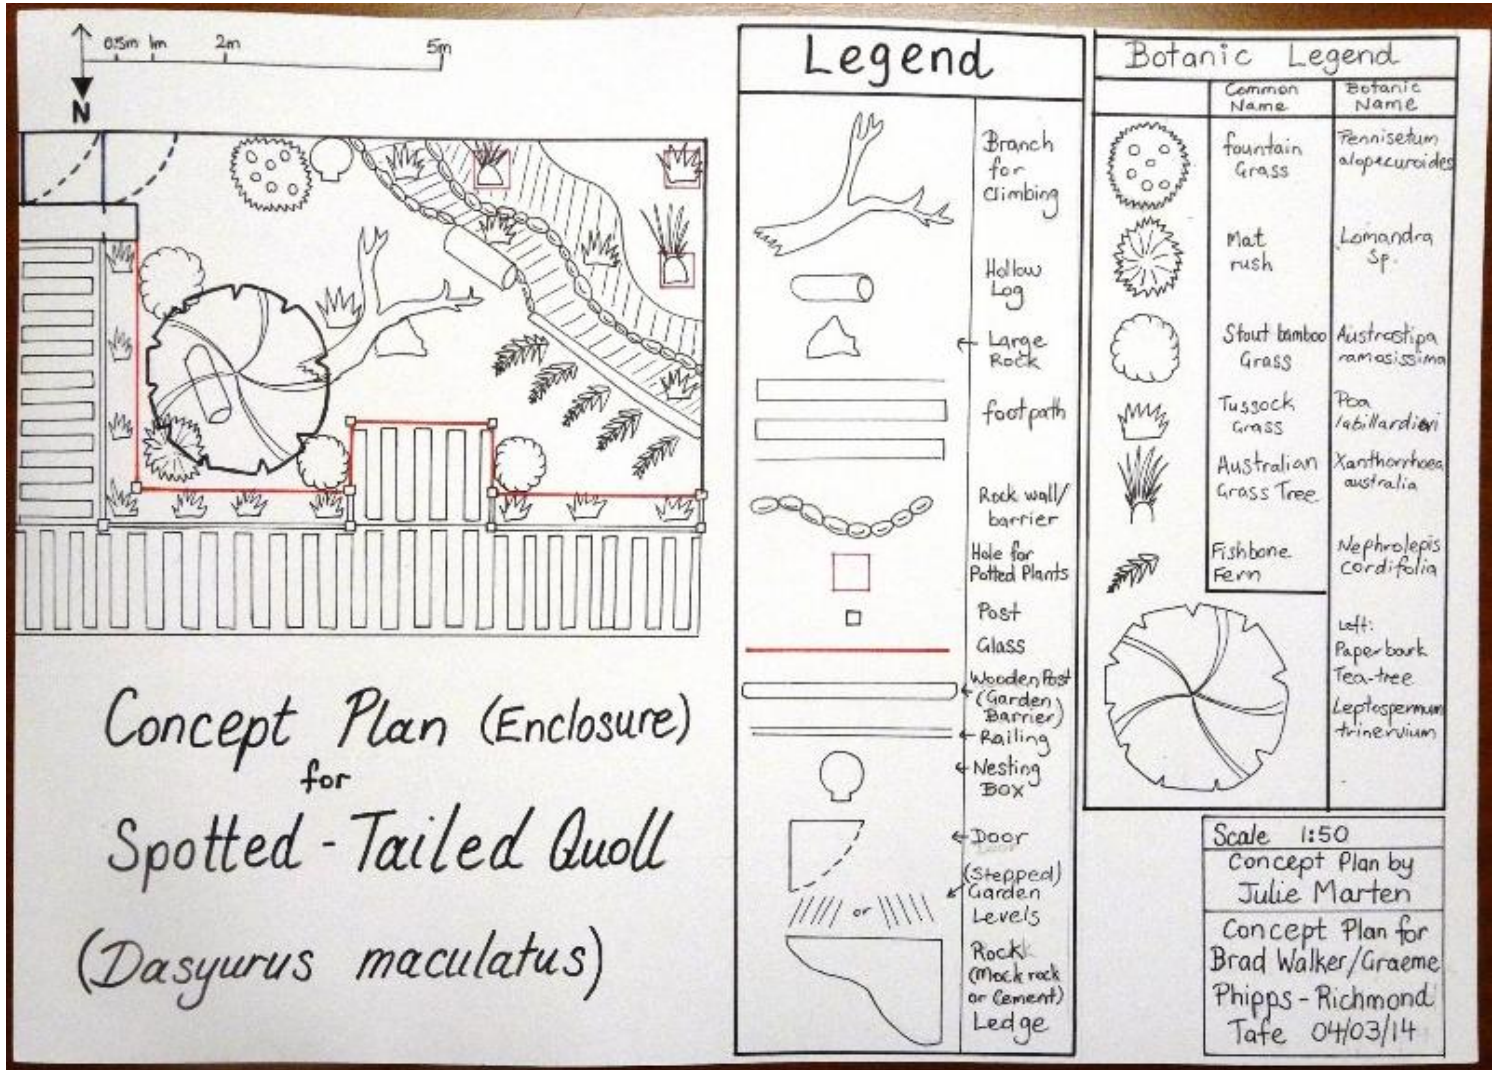 0.5m 1m 2m 5m
N
Concept Plan (Enclosure)
for
Spotted - Tailed Quoll
(Dasyurus maculatus)
Legend
Branch
for
Climbing
Hollow
Log
Large
Rock
footpath
Rock wall/
barrier
Hole for
Potted Plants
Post
Glass
Wooden Post
(Garden
Barrier)
Railing
Nesting
Box
Door
(Stepped)
Garden
Levels
or
Rock
(Mock rock
or Cement)
Ledge
Botanic Legend
Common
Name
Botanic
Name
fountain
Grass
Pennisetum
alopecuroides
Mat
rush
Lomandra
Sp.
Stout bamboo
Grass
Austrostipa
ramosissima
Tussock
Grass
Poa
labillardieri
Australian
Grass Tree
Xanthorrhoea
australia
Fishbone
Fern
Nephrolepis
Cordifolia
Left:
Paperbark
Tea-tree
Leptospermum
trinervium
Scale 1:50
Concept Plan by
Julie Marten
Concept Plan for
Brad Walker/Graeme
Phipps - Richmond
Tafe 04/03/14